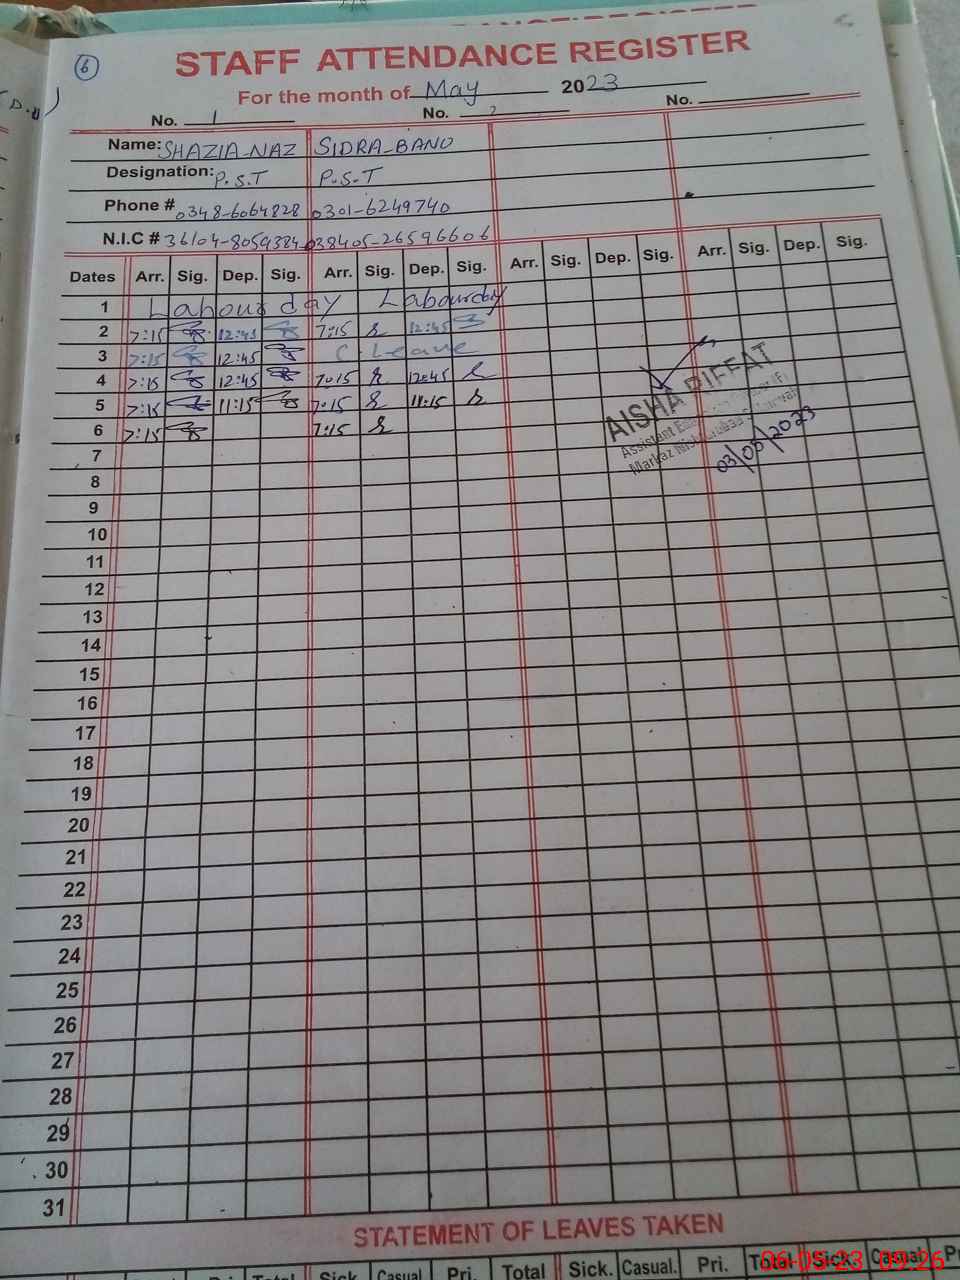 6
STAFF ATTENDANCE REGISTER
For the month of May 2023
No. 1 No. 2 No.
Name: SHAZIA NAZ SIDRA BANO
Designation: P.S.T P.S.T
Phone # 0348-6064828 0301-6249740
N.I.C # 36104-8059384-0 38405-2659660 6
Dates Arr. Sig. Dep. Sig. Arr. Sig. Dep. Sig. Arr. Sig. Dep. Sig. Arr. Sig. Dep. Sig.
1 Labour day Labour day
2 7:15 12:45 7:15 12:45
3 7:15 12:45 C. Leave
4 7:15 12:45 7:15 12:45
5 7:15 11:15 7:15 11:15
6 7:15 7:15
AISHA RIFFAT
Assistant Education
Markaz
03/05/2023
7
8
9
10
11
12
13
14
15
16
17
18
19
20
21
22
23
24
25
26
27
28
29
30
31
STATEMENT OF LEAVES TAKEN
Total Sick Casual Pri. Total Sick. Casual. Pri. Total Sick. Casual
06-05-23 09:26